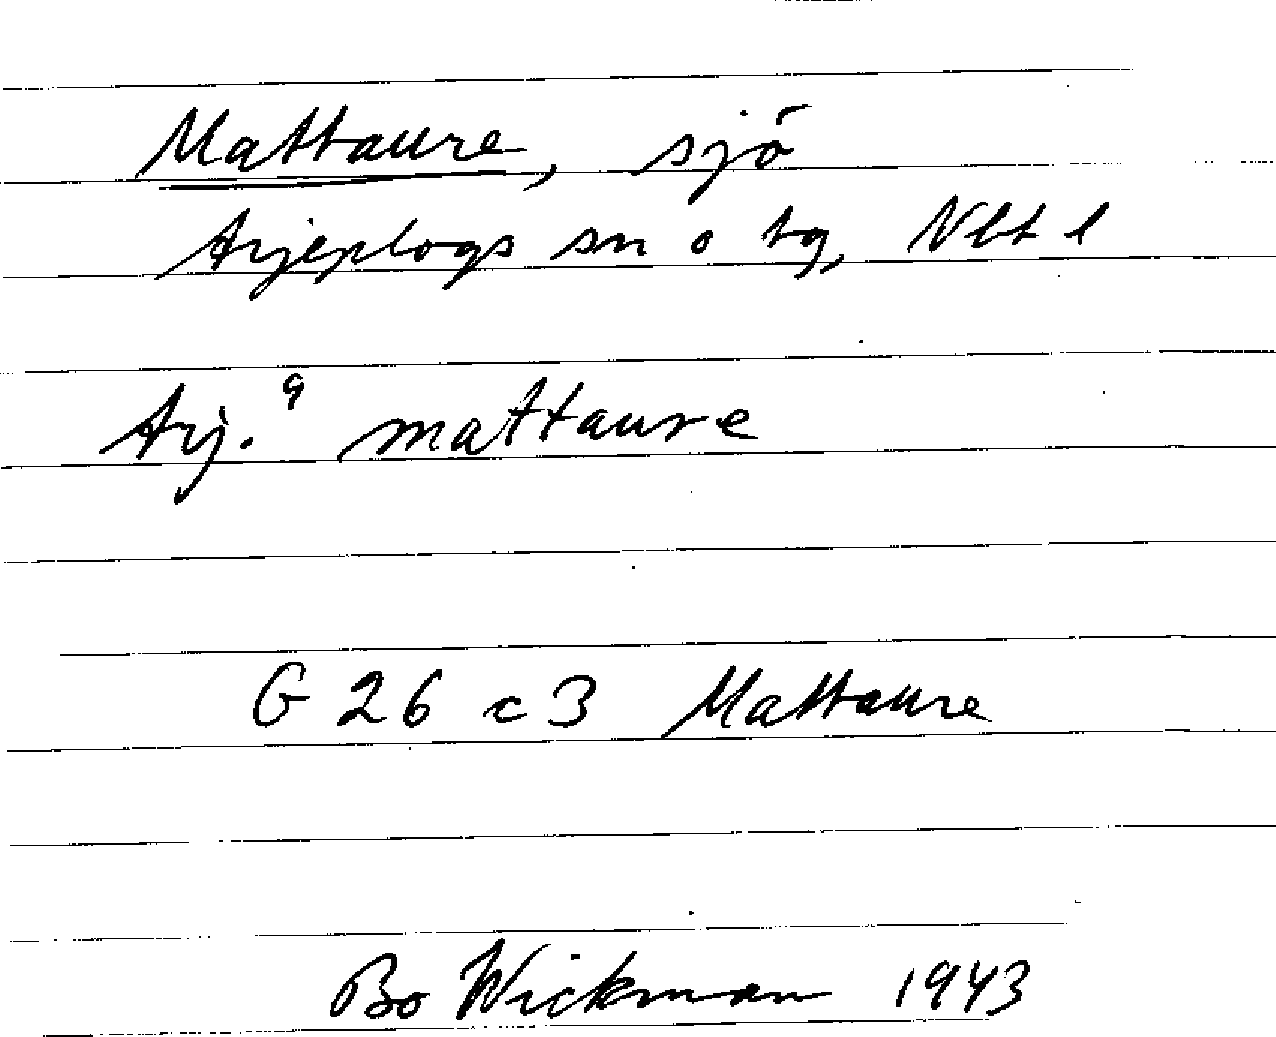 Mattaure, sjö
Arjeplogs sn o tg, Nbt l
Arj. 9 mattaure
G 26 c 3 Mattaure
Bo Wickman 1943